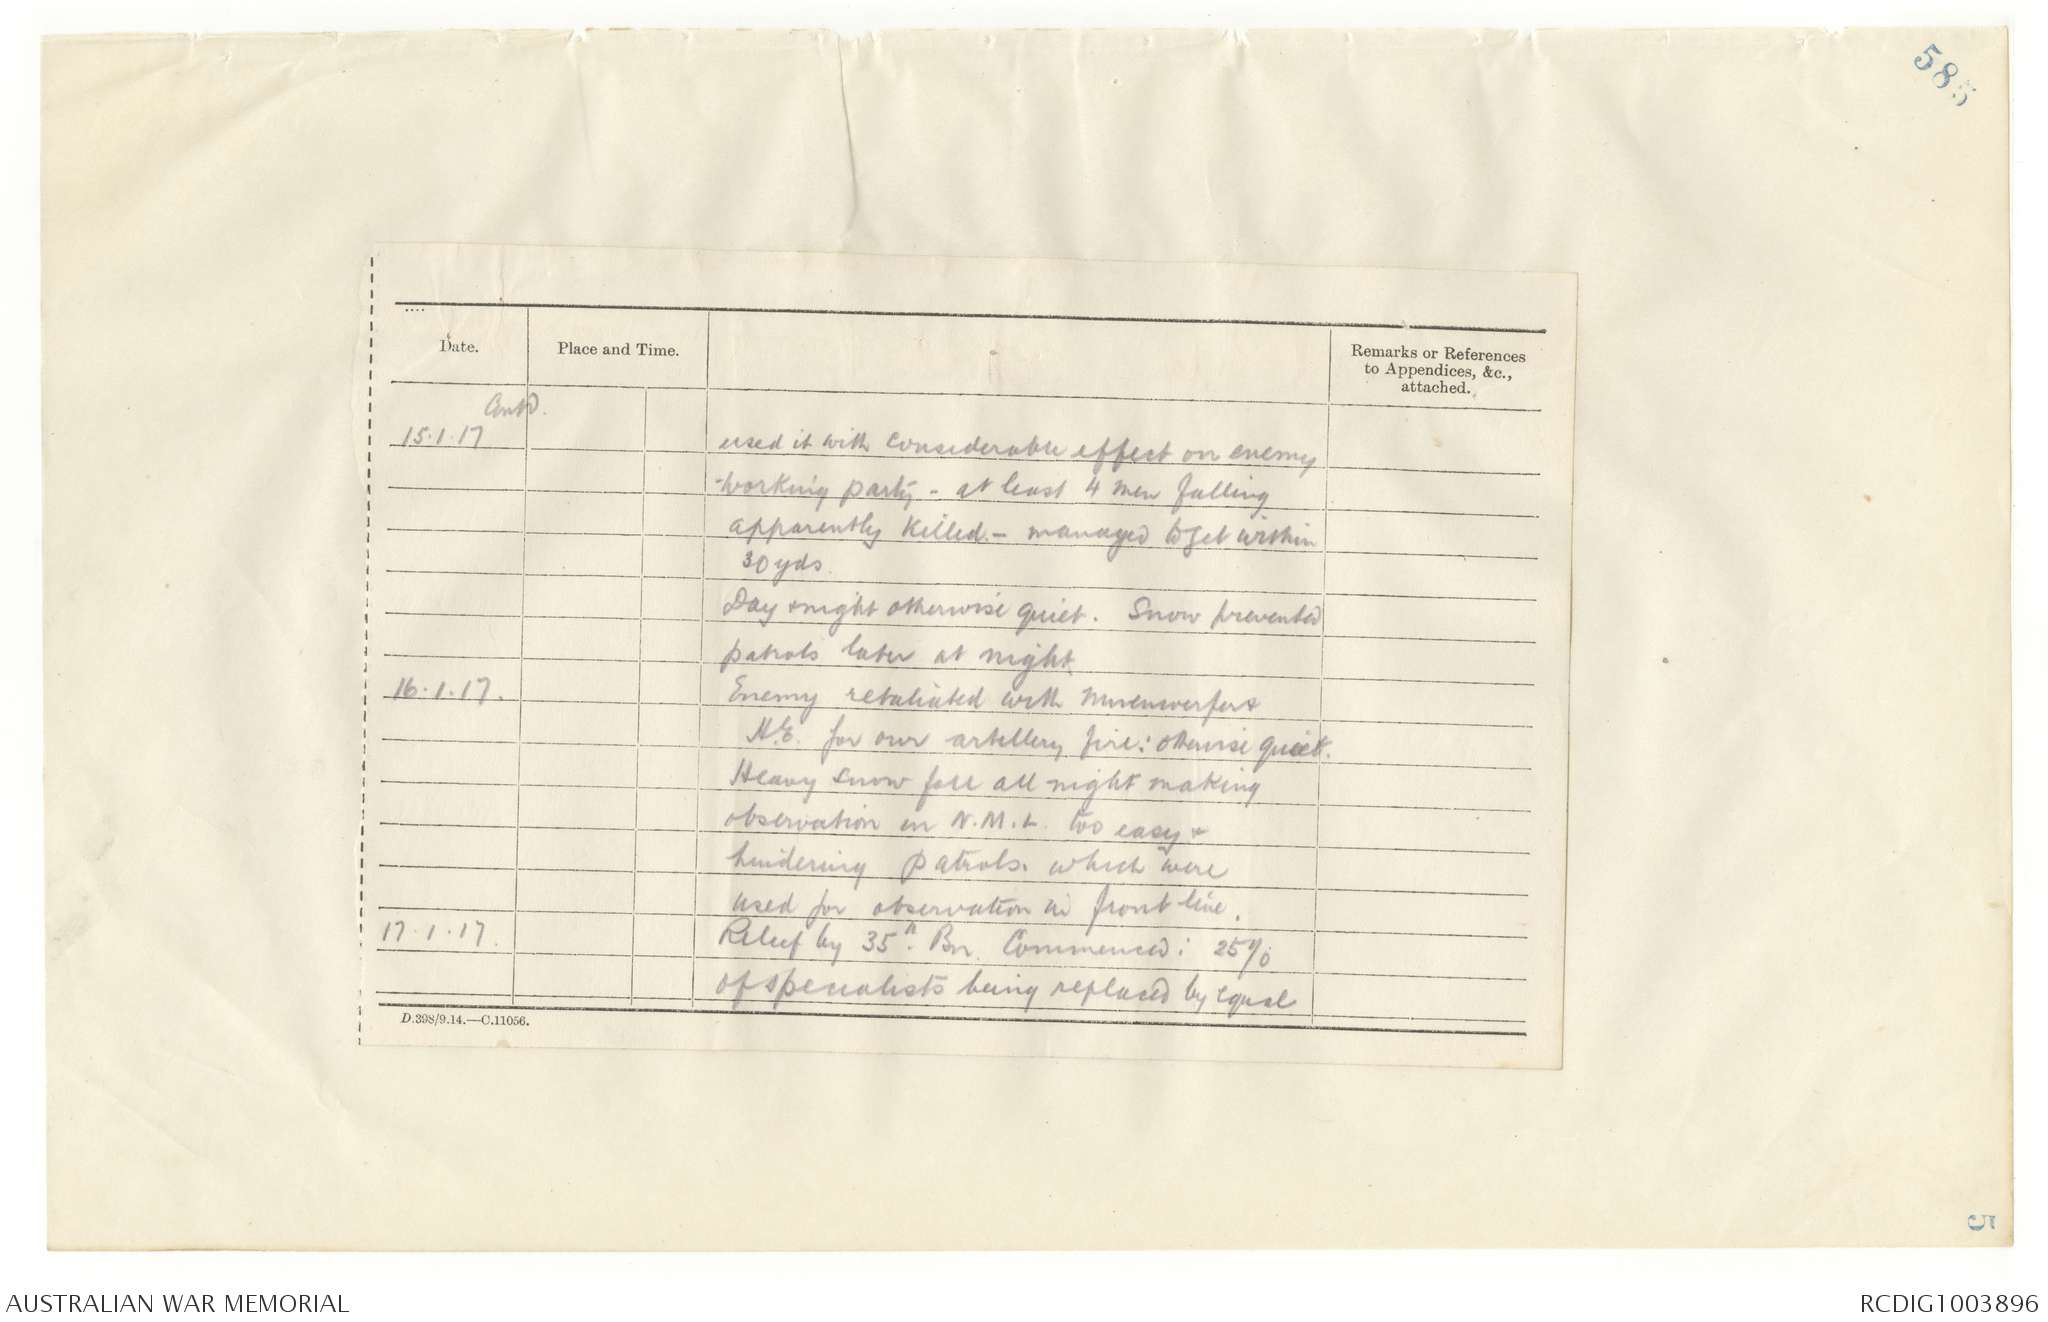 585
Date.
Place and Time.
Remarks or References
to Appendices, &c.,
attached.
Contd.
15.1.17
used it with considerable effect on enemy
working party - at least 4 men falling
apparently killed. - managed to get within
30 yds.
Day & night otherwise quiet. Snow prevented
patrols later at night.
16.1.17.
Enemy retaliated with Minenwerfer &
H.E. for our artillery fire: otherwise quiet.
Heavy snow fell all night making
observation in N.M.L. too easy &
hindering patrols. which were
used for observation in front line.
17.1.17.
Relief by 35th Bn. Commenced: 25%
of specialists being replaced by equal
D.398/9.14.—C.11056.
5
AUSTRALIAN WAR MEMORIAL
RCDIG1003896